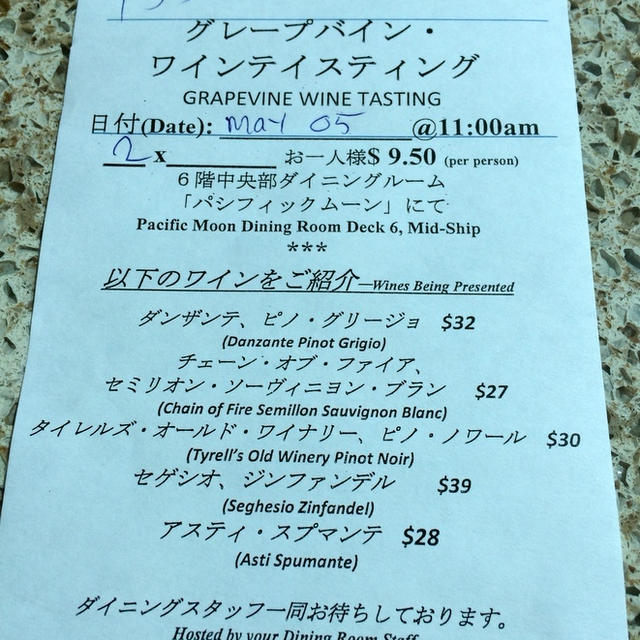 グレープバイン・
ワインテイスティング
GRAPEVINE WINE TASTING
日付(Date): May 05 @11:00am
2 x お一人様$ 9.50 (per person)
６階中央部ダイニングルーム
「パシフィックムーン」にて
Pacific Moon Dining Room Deck 6, Mid-Ship
***
以下のワインをご紹介—Wines Being Presented
ダンザンテ、ピノ・グリージョ $32
(Danzante Pinot Grigio)
チェーン・オブ・ファイア、
セミリオン・ソーヴィニヨン・ブラン $27
(Chain of Fire Semillon Sauvignon Blanc)
タイレルズ・オールド・ワイナリー、ピノ・ノワール $30
(Tyrell's Old Winery Pinot Noir)
セゲシオ、ジンファンデル $39
(Seghesio Zinfandel)
アスティ・スプマンテ $28
(Asti Spumante)
ダイニングスタッフ一同お待ちしております。
Hosted by your Dining Room Staff